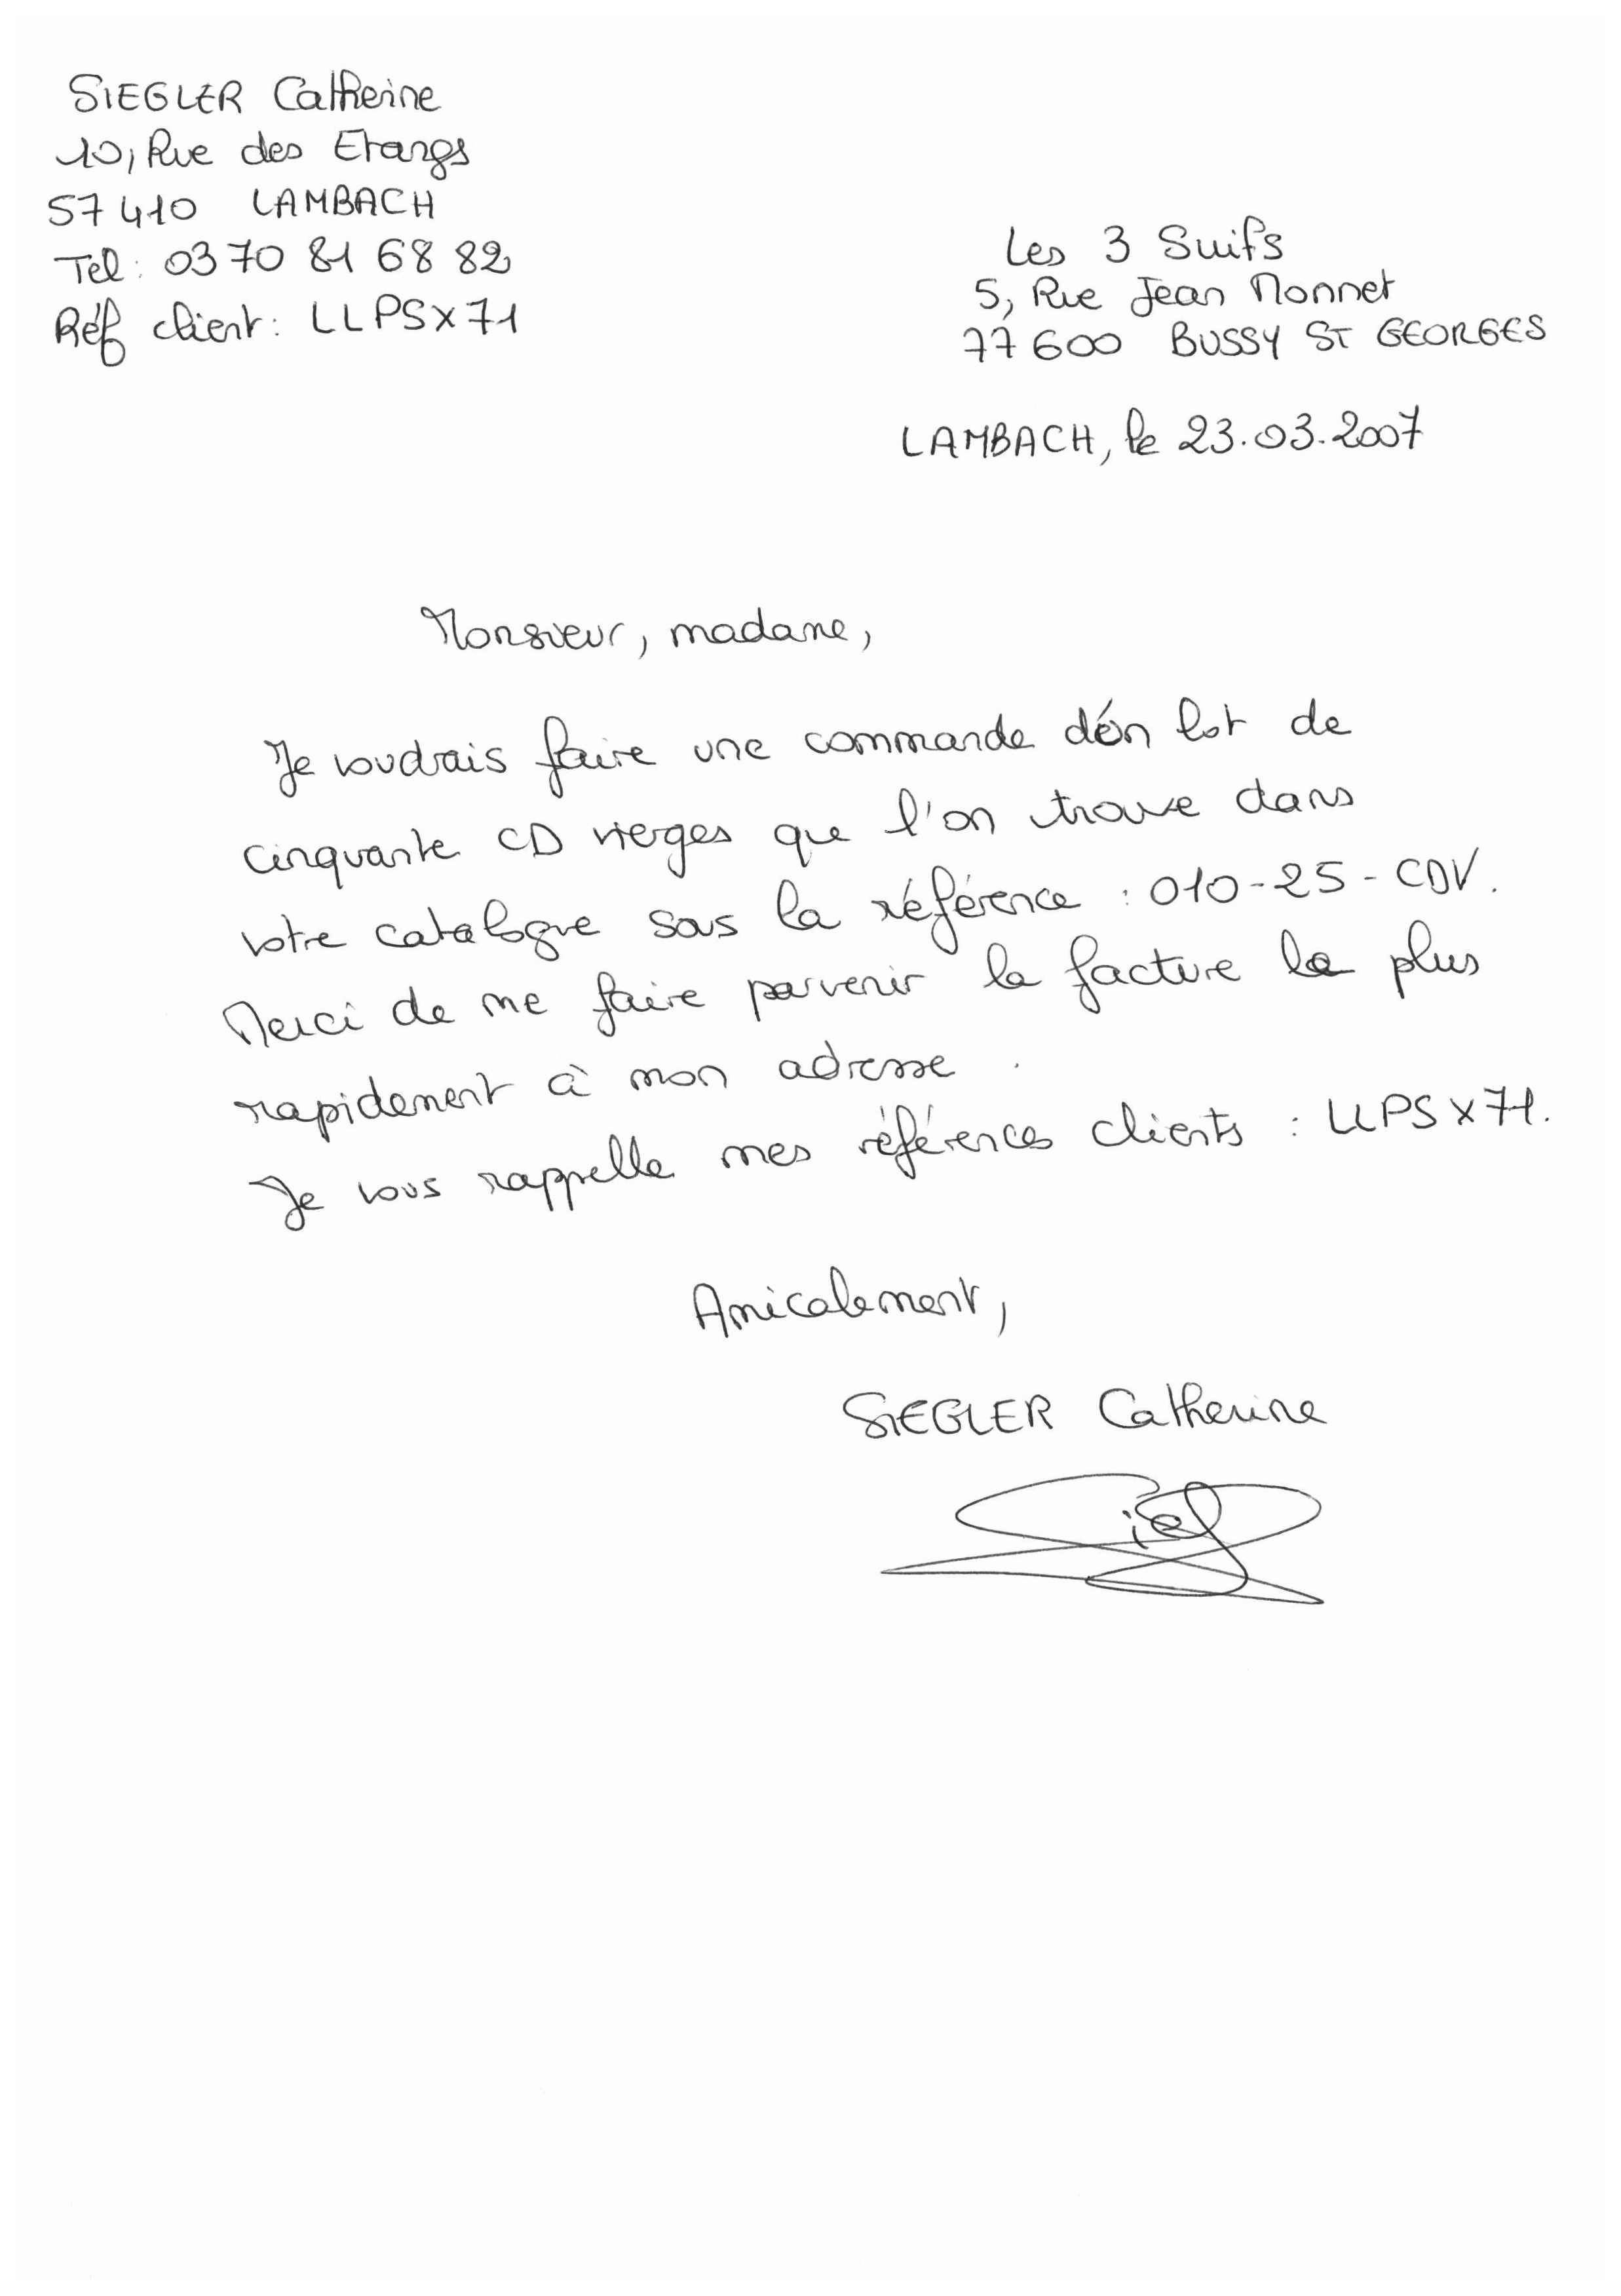 SIEGLER Catherine
10, Rue des Etangs
57410 LAMBACH
Tel : 03 70 81 68 82
Réf client : LLPSX71
Les 3 Suifs
5, Rue Jean Monnet
77600 BUSSY ST GEORGES
LAMBACH, le 23.03.2007
Monsieur, madame,
Je voudrais faire une commande d'un lot de
cinquante CD vierges que l'on trouve dans
votre catalogue sous la référence : 010-25-CDV.
Merci de me faire parvenir la facture le plus
rapidement à mon adresse.
Je vous rappelle mes références clients : LLPSX71.
Amicalement,
SIEGLER Catherine